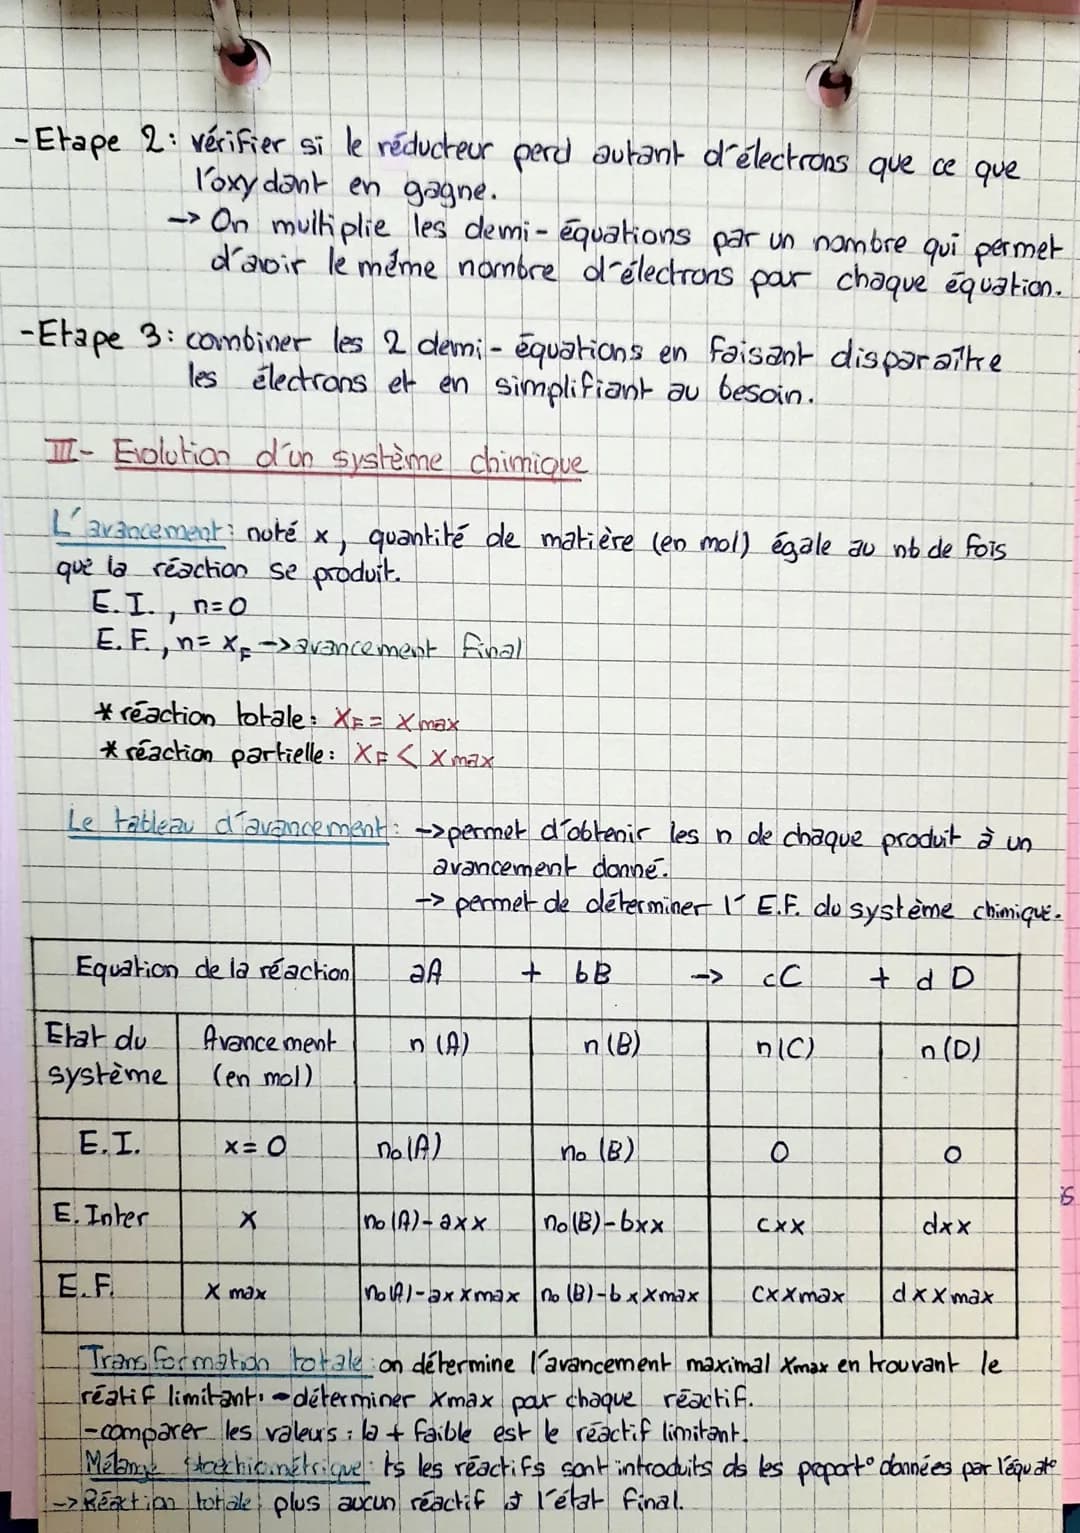 - Etape 2 : vérifier si le réducteur perd autant d'électrons que ce que
l'oxydant en gagne.
-> On multiplie les demi-équations par un nombre qui permet
d'avoir le même nombre d'électrons par chaque équation.
- Etape 3 : combiner les 2 demi-équations en faisant disparaître
les électrons et en simplifiant au besoin.
III- Evolution d'un système chimique
L'avancement : noté x, quantité de matière (en mol) égale au nb de fois
que la réaction se produit.
E.I., n=0
E.F., n= xF -> avancement final
* réaction totale : XF = Xmax
* réaction partielle : XF < Xmax
Le tableau d'avancement : -> permet d'obtenir les n de chaque produit à un
avancement donné.
-> permet de déterminer l'E.F. du système chimique.
Equation de la réaction aA + bB -> cC + dD
Etat du système Avancement (en mol) n(A) n(B) n(C) n(D)
E.I. x=0 n₀(A) n₀(B) 0 0
E. Inter x n₀(A)-axx n₀(B)-bxx cxx dxx
E.F. x max n₀(A)-axxmax n₀(B)-bxxmax cxxmax dxxmax
Transformation totale : on détermine l'avancement maximal xmax en trouvant le
réatif limitant : - déterminer xmax par chaque réactif.
- comparer les valeurs : la + faible est le réactif limitant.
Mélange stoechiométrique : ts les réactifs sont introduits ds les proport° données par l'équat°
-> Réaction totale : plus aucun réactif à l'état final.